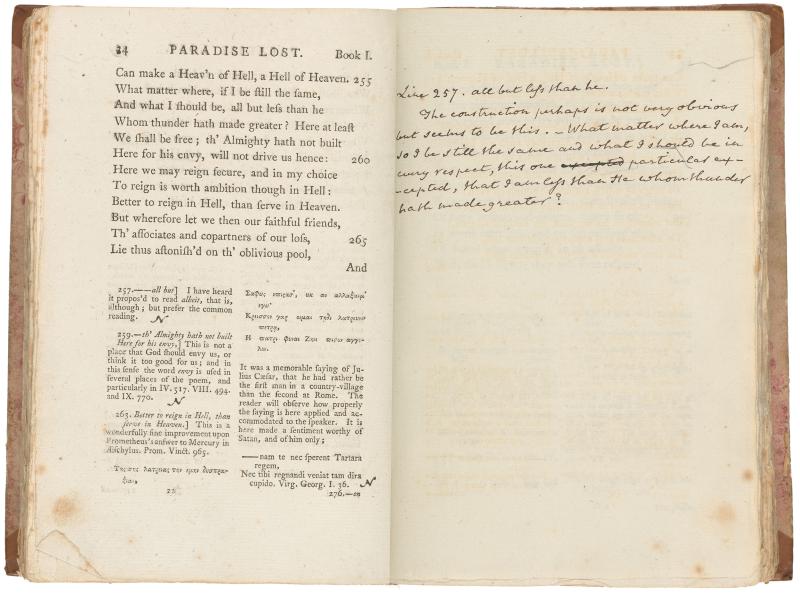 24 PARADISE LOST. Book I.
Can make a Heav'n of Hell, a Hell of Heaven. 255
What matter where, if I be ſtill the ſame,
And what I ſhould be, all but leſs than he
Whom thunder hath made greater? Here at leaſt
We ſhall be free; th' Almighty hath not built
Here for his envy, will not drive us hence: 260
Here we may reign ſecure, and in my choice
To reign is worth ambition though in Hell:
Better to reign in Hell, than ſerve in Heaven.
But wherefore let we then our faithful friends,
Th' aſſociates and copartners of our loſs, 265
Lie thus aſtoniſh'd on th' oblivious pool,
And
257.——all but] I have heard
it propos'd to read albeit, that is,
although; but prefer the common
reading. N
259.—th' Almighty hath not built
Here for his envy,] This is not a
place that God ſhould envy us, or
think it too good for us; and in
this ſenſe the word envy is uſed in
ſeveral places of the poem, and
particularly in IV. 517. VIII. 494.
and IX. 770. N
263. Better to reign in Hell, than
ſerve in Heaven.] This is a
wonderfully fine improvement upon
Prometheus's anſwer to Mercury in
Æſchylus. Prom. Vinct. 965.
Της σης λατρειας την εμην δυσπρα-
ξιαν,
Σαφως επιςασ', ουκ αν αλλαξαιμ'
εγω·
Κρεισσον γαρ οιμαι τηδε λατρευειν
πετρᾳ,
Η πατρι φυναι Ζηνι πιςον αγγε-
λον.
It was a memorable ſaying of Ju-
lius Cæſar, that he had rather be
the firſt man in a country-village
than the ſecond at Rome. The
reader will obſerve how properly
the ſaying is here applied and ac-
commodated to the ſpeaker. It is
here made a ſentiment worthy of
Satan, and of him only;
——nam te nec ſperent Tartara
regem,
Nec tibi regnandi veniat tam dira
cupido. Virg. Georg. I. 36. N
276.—on
Line 257. all but leſs than he.
The construction perhaps is not very obvious
but seems to be this. – What matter where I am,
so I be still the same and what I should be in
every respect, this one excepted particular ex-
-cepted, that I am leſs than He whom thunder
hath made greater?